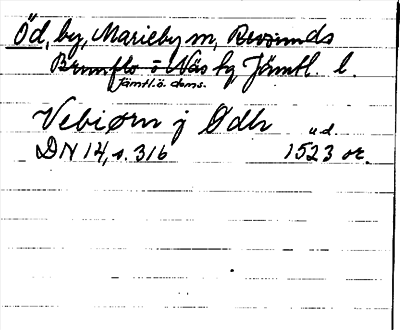 Öd, by, Marieby sn, Revsunds
Brunflo o Näs hg Jämtl. l.
Jämtl. ö. doms.
Vebiørn j Ødh
u.d.
DN 14, s. 316 1523 or.